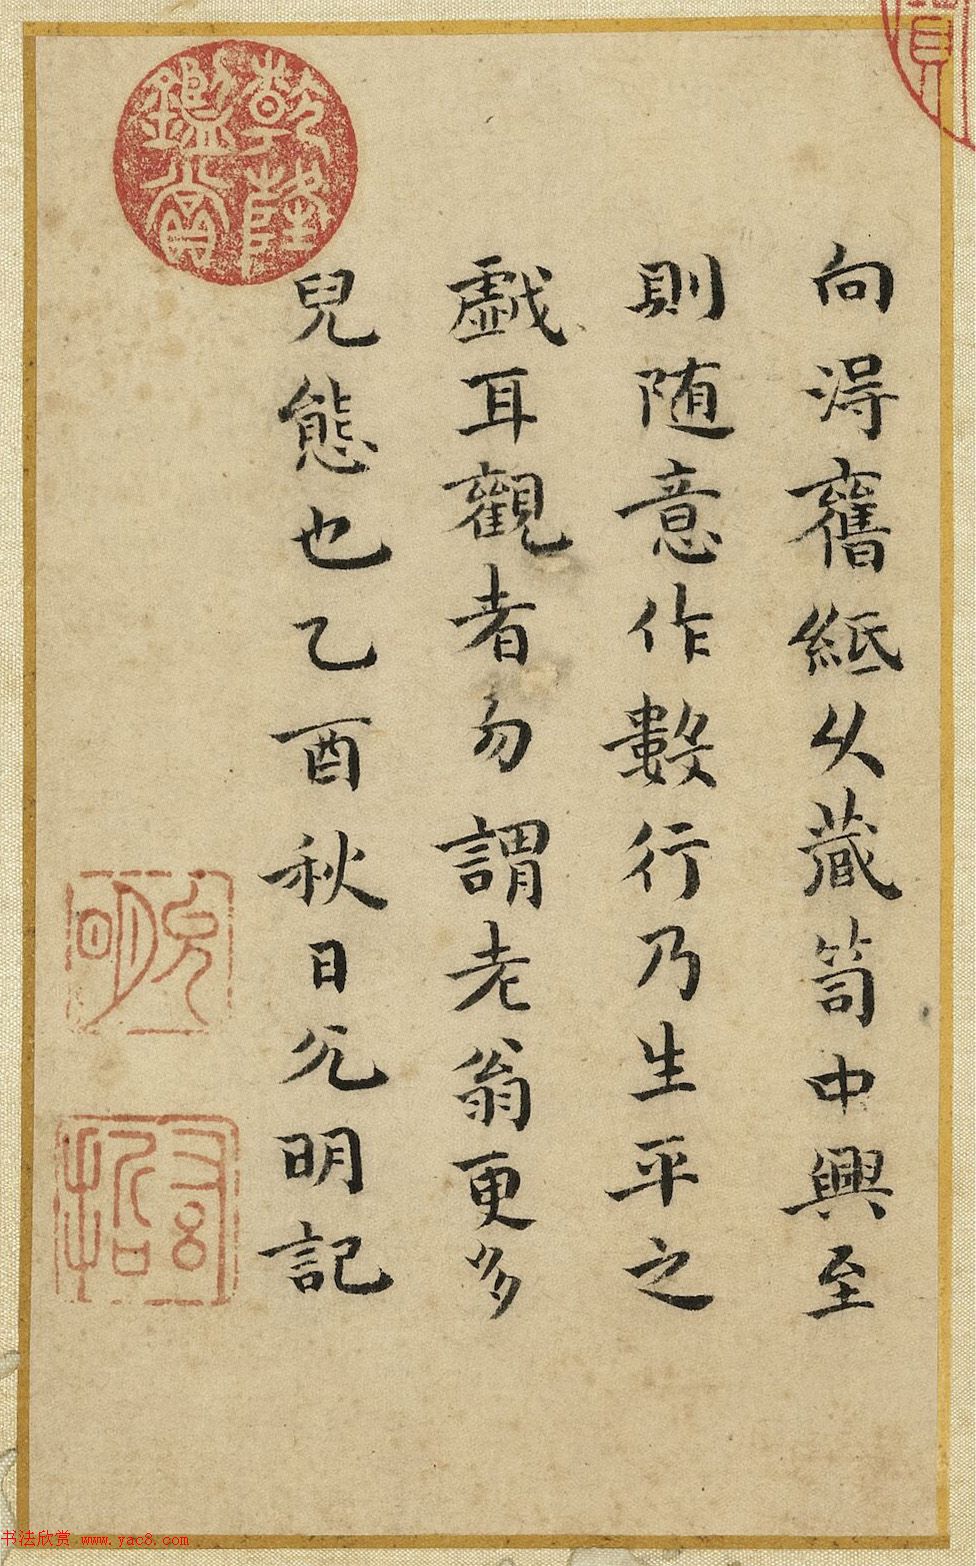 向得舊紙久藏笥中興至
則随意作數行乃生平之
戯耳觀者勿謂老翁更多
兒態也乙酉秋日允明記
乾隆
鑑賞
允明
書法欣賞 www.yac8.com